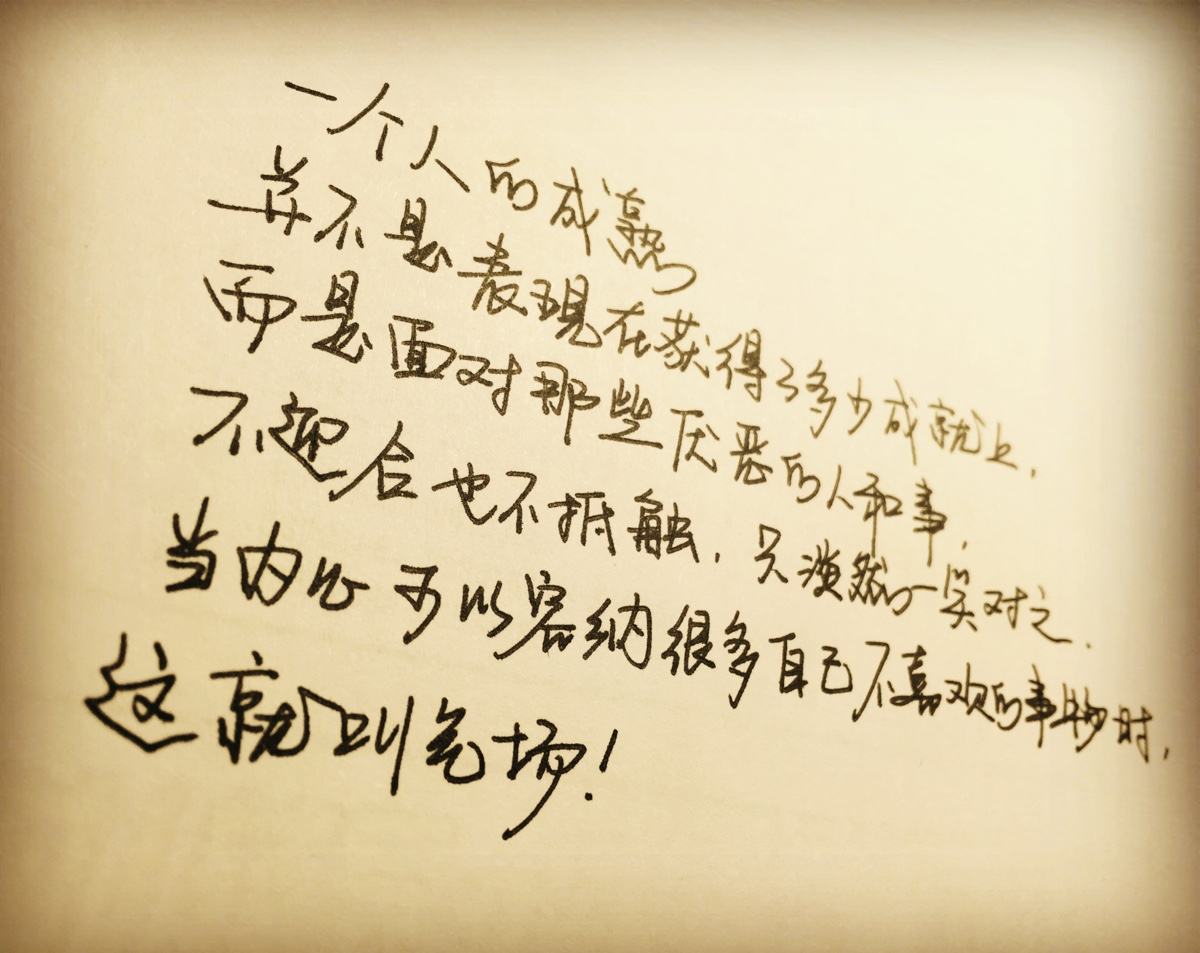 一个人的成熟
并不是表现在获得了多少成就上，
而是面对那些厌恶的人和事，
不迎合也不抵触，只淡然一笑对之．
当内心可以容纳很多自己不喜欢的事物时，
这就叫气场！